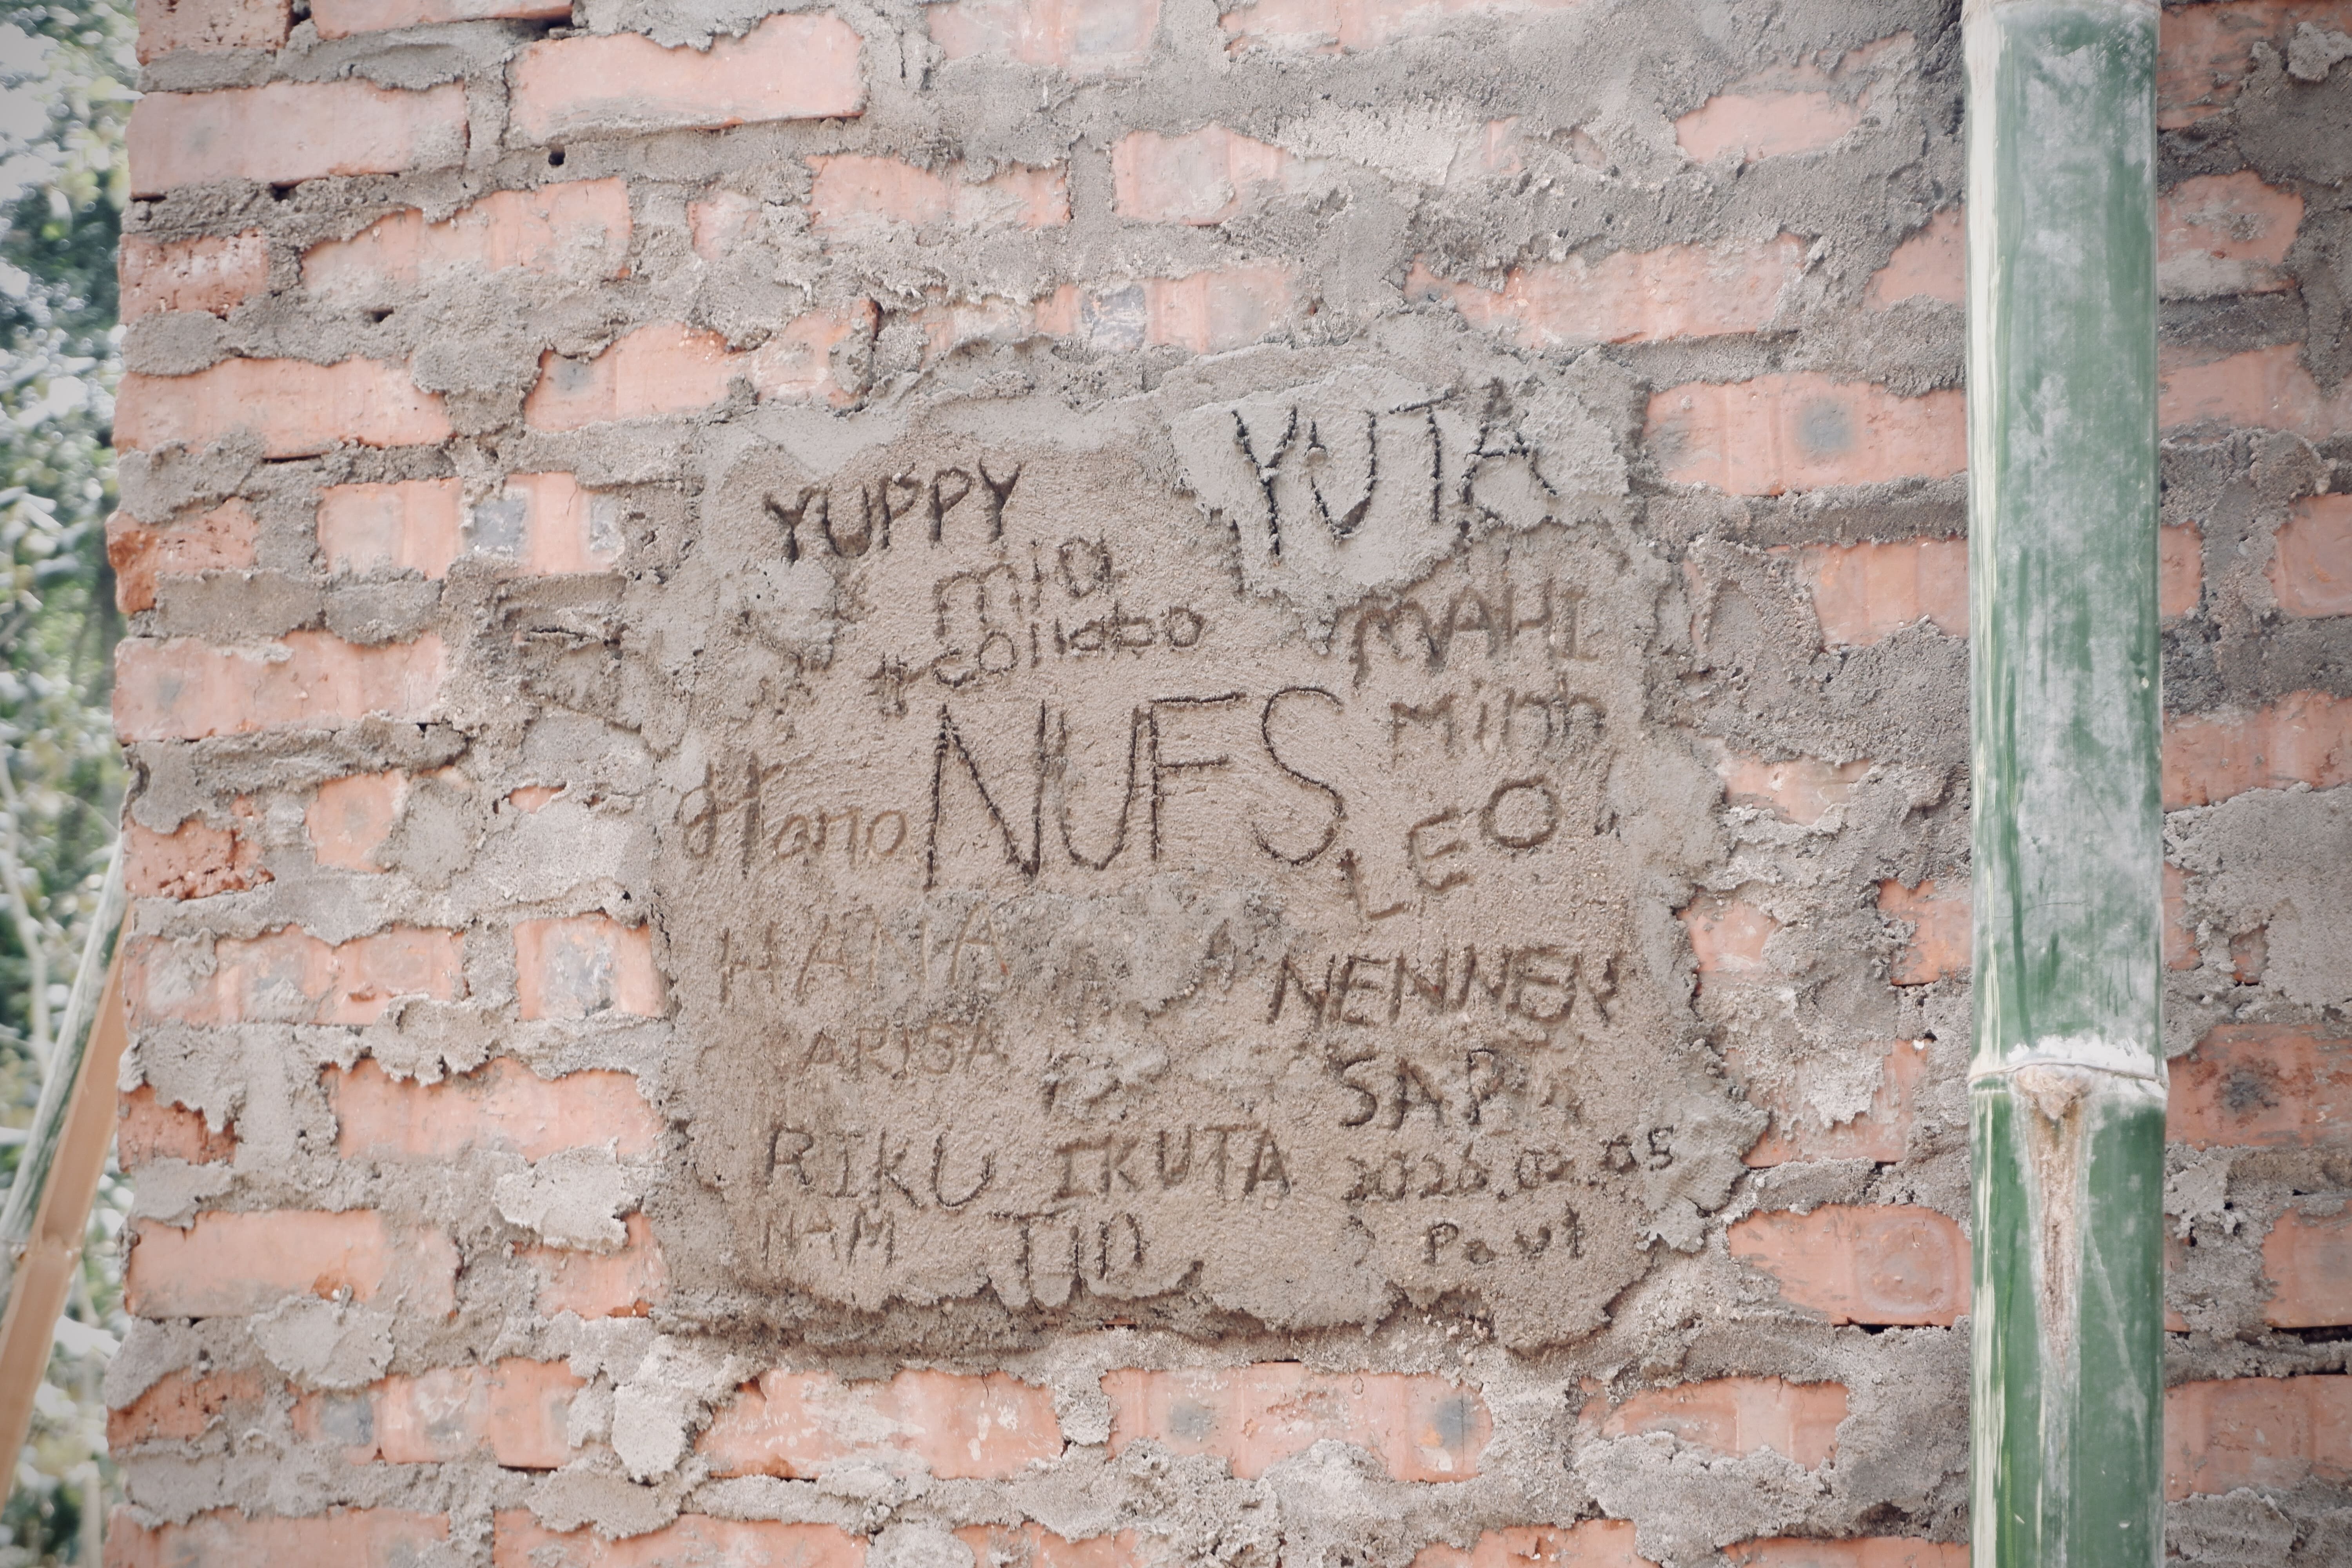 YUPPY
YUTA
mia
#collabo
MAHI
Minh
NUFS
Hano
LEO
HANA
NENNEN
ARISA
SAPA
RIKU IKUTA
2026.02.05
NAM
TUD